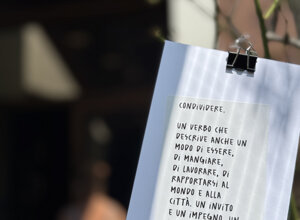 CONDIVIDERE.
UN VERBO CHE
DESCRIVE ANCHE UN
MODO DI ESSERE,
DI MANGIARE,
DI LAVORARE, DI
RAPPORTARSI AL
MONDO E ALLA
CITTÀ. UN INVITO
E UN IMPEGNO. UN